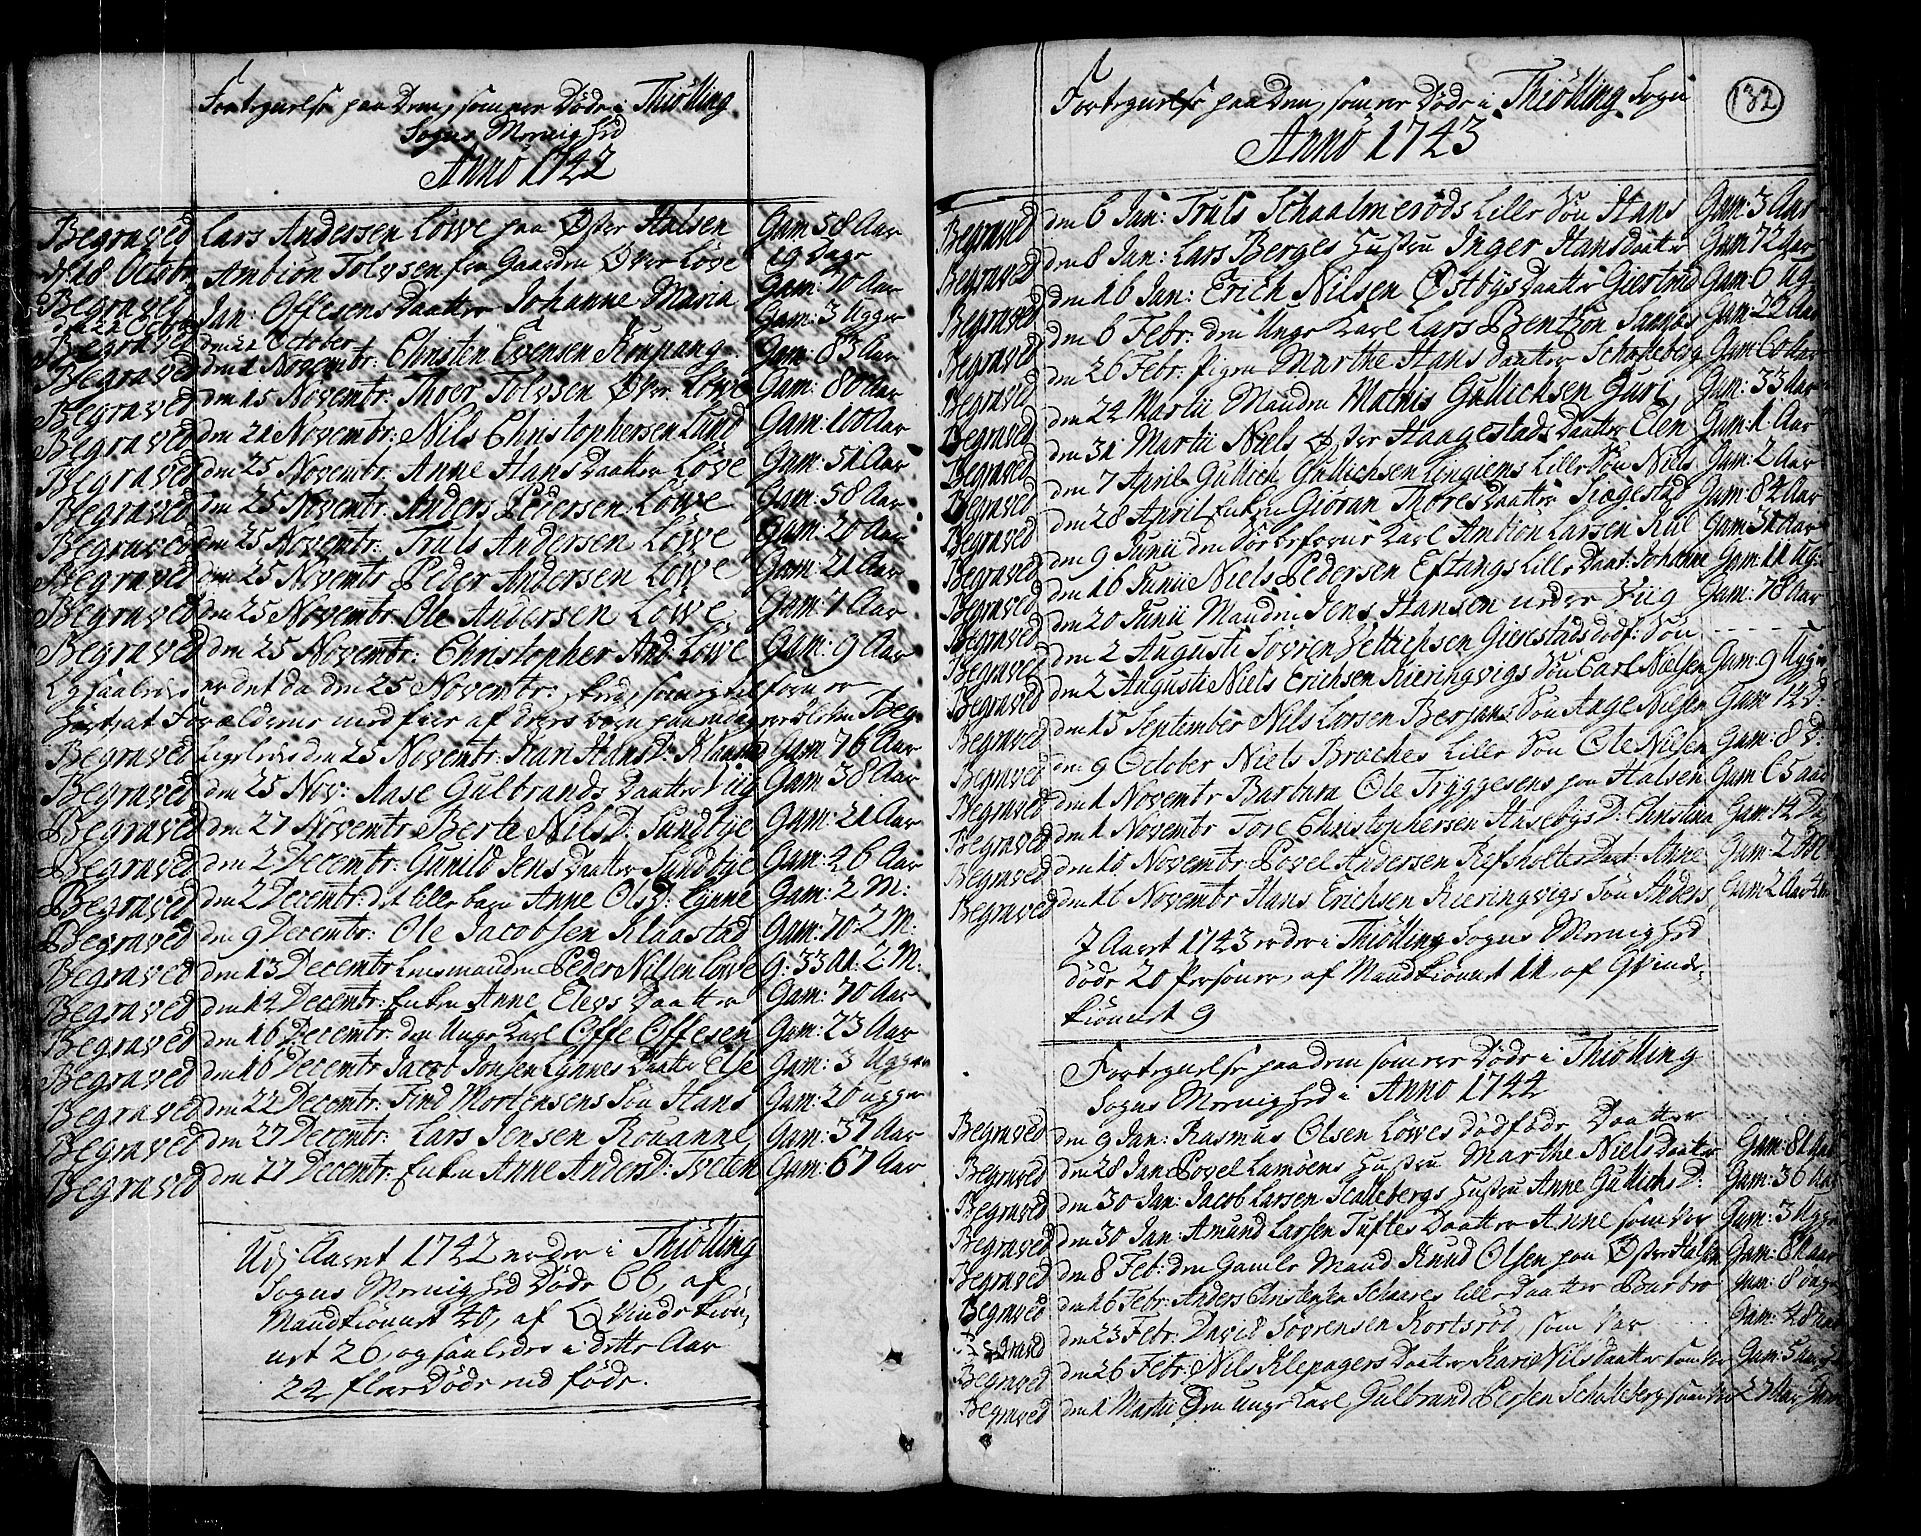 Fortegnelse paa Dem, som ere Døde i Thiølling
Sogns Menighed
Anno 1742
Begraved Lars Andersen Löwe paa Øster Halsen Gam 58 Aar
d: 18 Octobr Ambiön Tolvsen fra Gaarden Över Löve 19 Dage
Begraved Jan: Offesens Daatter Johanne Maria Gam: 70 Aar
den 22 October Gam: 3 Uger
Begraved den 1 Novembr: Christen Evensen Kaupang Gam: 83 Aar
Begraved den 15 Novembr: Thoer Tolvsen Över Löwe Gam: 80 Aar
Begraved den 21 Novembr: Nils Christophersen Lund Gam: 100 Aar
Begraved den 25 Novembr: Anne Hans Daatter Löve Gam: 51 Aar
Begraved den 25 Novembr: Anders Pedersen Löwe Gam: 58 Aar
Begraved den 25 Novembr: Truls Andersen Löwe Gam: 20 Aar
Begraved den 25 Novembr Peder Andersen Löwe Gam: 21 Aar
Begraved den 25 Novembr Ole Andersen Löwe Gam: 7 Aar
Begraved den 25 Novembr: Christopher And: Löwe Gam: 9 Aar
er det da den 25 Novembr:
Forældrene med fiire af deres børn paa en dag Beg:
Begraved ligeledes den 25 Novembr: Kari Hans D: Klaastad Gam 76 Aar
Begraved den 25 Nov: Aase Gulbrands Daatter Viig Gam 38 Aar
Begraved den 27 Novembr Berte Nils D: Sundbye Gam: 21 Aar
Begraved den 2 Decembr: Gunild Jens Daatter Sundbye Gam: 26 Aar
Begraved den 2 Decembr: det lille barn Anne Ols D: Lynne Gam: 2 M:
Begraved den 9 Decembr: Ole Jacobsen Klaastad Gam: 70 2 M:
Begraved den 13 Decembr Lensmanden Peder Nilsen Löwe G: 33 Aa: 2 M:
Begraved den 14 Decembr: Enken Anne Elevs Daatter Gam: 70 Aar
Begraved den 16 Decembr: den Unge Karl Offe Offesen Gam: 23 Aar
Begraved den 16 Decembr Jacob Jonsen Lynnes Daatter Else Gam: 3 Uger
Begraved den 22 Decembr: Find Mortensens Søn Hans Gam: 26 uger
Begraved den 27 Decembr: Lars Jensen Rouanne Gam: 37 Aar
Begraved den 27 Decembr: Enken Anne Anders D: Tveten Gam: 67 Aar
Udj Aaret 1742 ere der i Thiølling
Sogns Menighed Døde 66, af
Mandkiönnet 40, af Qvindekiön-
net 26, og saaledes i dette Aar
24 flere Døde end föde.
132
Fortegnelse paa Dem, som ere Døde i Thiølling Sogn
Anno 1743
Begraved den 6 Jan: Truls Schaalmeröds Lille Søn Hans Gam: 3 Aar
Begraved den 8 Jan: Lars Berges Hustru Inger Hans Daatter Gam 72 Aar
Begraved den 16 Jan: Erich Nilsen Østbys Daatter Giertrud Gam 6 Ug:
Begraved den 6 Febr: den Unge Karl Lars Bentsön Gam: 22 Aar
Begraved den 26 Febr: Pigen Marthe Hans Daatter Schalleberg Gam: 60 Aar
Begraved den 24 Martii Manden Mathis Gullichsen Guri Gam: 33 Aar
Begraved den 31 Martii Niels Øster Haagestads Daatter Elen Gam: 1 Aar
Begraved den 7 April Gullich Gullichsen Lille Søn Niels Gam: 2 Aar
Begraved den 28 April Enken Giöran Thores Daatter Gam: 82 Aar
Begraved den 9 Junii den Karl Ambiön Larsen Gam: 31 Aar
Begraved den 16 Junii Niels Pedersen Eftangs Lille Daat: Johanne Gam: 11 Ug:
Begraved den 20 Junii Manden Jens Hansen Gam: 78 Aar
Begraved den 2 Augusti Sövren Gierstads dødf: Søn
Begraved den 2 Augusti Niels Erichsen Kieringvigs Søn Carl Nielsen Gam: 9 Uger
Begraved den 15 September Nils Larsen Berjans Søn Aage Nielsen Gam 14 D:
Begraved den 9 October Niels Braches Lille Søn Ole Nilsen Gam: 8 D:
Begraved den 1 Novembr Barbara Ole Tryggesens paa Halsen Gam 65 aar
Begraved den 1 Novembr Tore Christophersen Husebys D: Christina Gam: 14 D:
Begraved den 10 Novembr Povel Andersen Refsholts Daat: Anne Gam: 2
Begraved den 16 Novembr Hans Erichsen Kieringvigs Søn Anders Gam 2 Aar
J Aaret 1743 ere der i Thiølling Sogns Menighed
døde 20 Personer, af Mandkiönnet 11, af Qvinde-
kiönnet 9
Fortegnelse paa dem som ere Døde i Thiølling
Sogns Menighed i Anno 1744
Begraved den 9 Jan: Rasmus Olsen Löwes dødføde Daatter
Begraved den 28 Jan: Povel Lamöens Hustru Marthe Niels Daatter Gam: 81 Aar
Begraved den 30 Jan: Jacob Larsen Scallebergs Hustru Anne Gullichs D: Gam: 36 Aar
Begraved den 30 Jan: Amund Larsen Tuftes Daatter Anne som var Gam: 3 Uger
Begraved den 8 Feb: den Gamle Mand Knud Olsen paa Øster Halsen Gam: 81 aar
Begraved den 16 Febr: Anders Christensen Schaares lille Daatter Barbro Gam: 8 uger
Begraved den 23 Febr: David Sövrensen Kortsröd, som var Gam: 48 aar
Begraved den 26 Febr: Nils Klepagers Daatter Karie Nils Daatter som var Gam: 5 aar
Begraved den 1 Martii Den unge Karl Gulbrand Persen Schalleberg som var 27 Aar Gam: